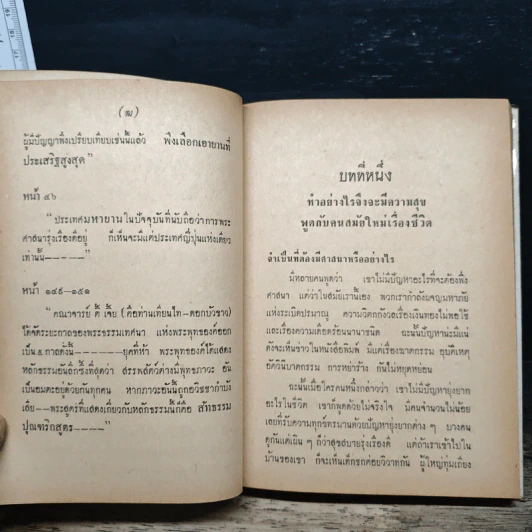 (๗)
ผู้มีปัญญาพึงเปรียบเทียบเช่นนี้แล้ว พึงเลือกเอายานที่
ประเสริฐสูงสุด”
หน้า ๔๖
“ประเทศมหายานในปัจจุบันที่นับถือว่าการพระ
ศาสนารุ่งเรืองดีอยู่ ก็เห็นจะมีแต่ประเทศญี่ปุ่นแห่งเดียว
เท่านั้น-----”
หน้า ๑๔๙-๑๕๑
“คณาจารย์ ตี้ เจี้ย (คือท่านเทียนไท-ดอกบัวขาว)
ได้จัดระยะกาลของพระธรรมเทศนา แห่งพระพุทธองค์ออก
เป็น ๕ กาลดังนี้-----ยุคที่ห้า พระพุทธองค์ได้แสดง
หลักธรรมอันลึกซึ้งที่สุดว่า สรรพสัตว์ต่างมีพุทธภาวะ อัน
เป็นอมตะอยู่ด้วยกันทุกคน หากภาวะอันนี้ถูกอวิชชากำบัง
เสีย--พระสูตรที่แสดงเกี่ยวกับหลักธรรมนี้ก็คือ สัทธรรม
ปุณฑริกสูตร----”
บทที่หนึ่ง
ทำอย่างไรจึงจะมีความสุข
พูดกับคนสมัยใหม่เรื่องชีวิต
จำเป็นที่ต้องมีศาสนาหรืออย่างไร
มีหลายคนพูดว่า เขาไม่มีปัญหาอะไรที่จะต้องพึ่ง
ศาสนา แต่ว่าในสมัยเรานี้เอง พวกเรากำลังผจญมหาภัย
แห่งระเบิดปรมาณู ความวิตกกังวลเรื่องเงินทองไม่พอใช้
และเรื่องความเดือดร้อนนานาชนิด ฉะนั้นปัญหานี้จะมีแน่
ดังจะเห็นข่าวในหนังสือพิมพ์ มีแต่เรื่องฆาตกรรม อุบัติเหตุ
อัตวินิบาตกรรม การหย่าร้าง กันไม่หยุดหย่อน
ฉะนั้นเมื่อใครคนหนึ่งกล่าวว่า เขาไม่มีปัญหายุ่งยาก
อะไรในชีวิต เขาก็พูดด้วยไม่จริงใจ มีคนจำนวนไม่น้อย
เลยที่รับความทุกข์ทรมานด้วยปัญหายุ่งยากต่าง ๆ บางคน
ดูกันแต่เผิน ๆ ก็ว่าสุขสบายรุ่งเรืองดี แต่ถ้าเราเข้าไปใน
บ้านของเขา ก็จะเห็นเด็กชกต่อยวิวาทกัน ผู้ใหญ่ทุ่มเถียง